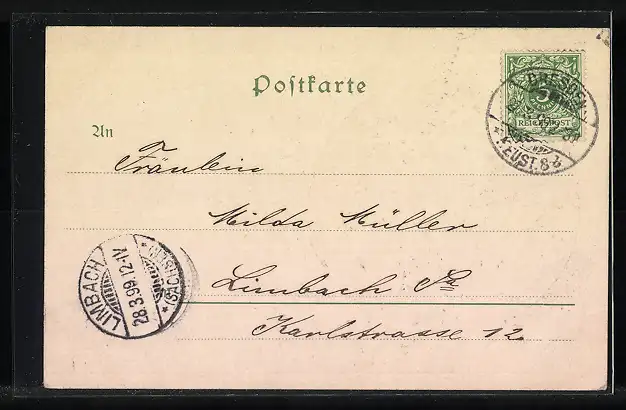 Postkarte
5
REICHSPOST
DRESDEN
NEUST. 8
An
Fräulein
Milda Müller
Limbach Sa
Karlstrasse 12
LIMBACH
28.3.99.12-1V
(SACHSEN)